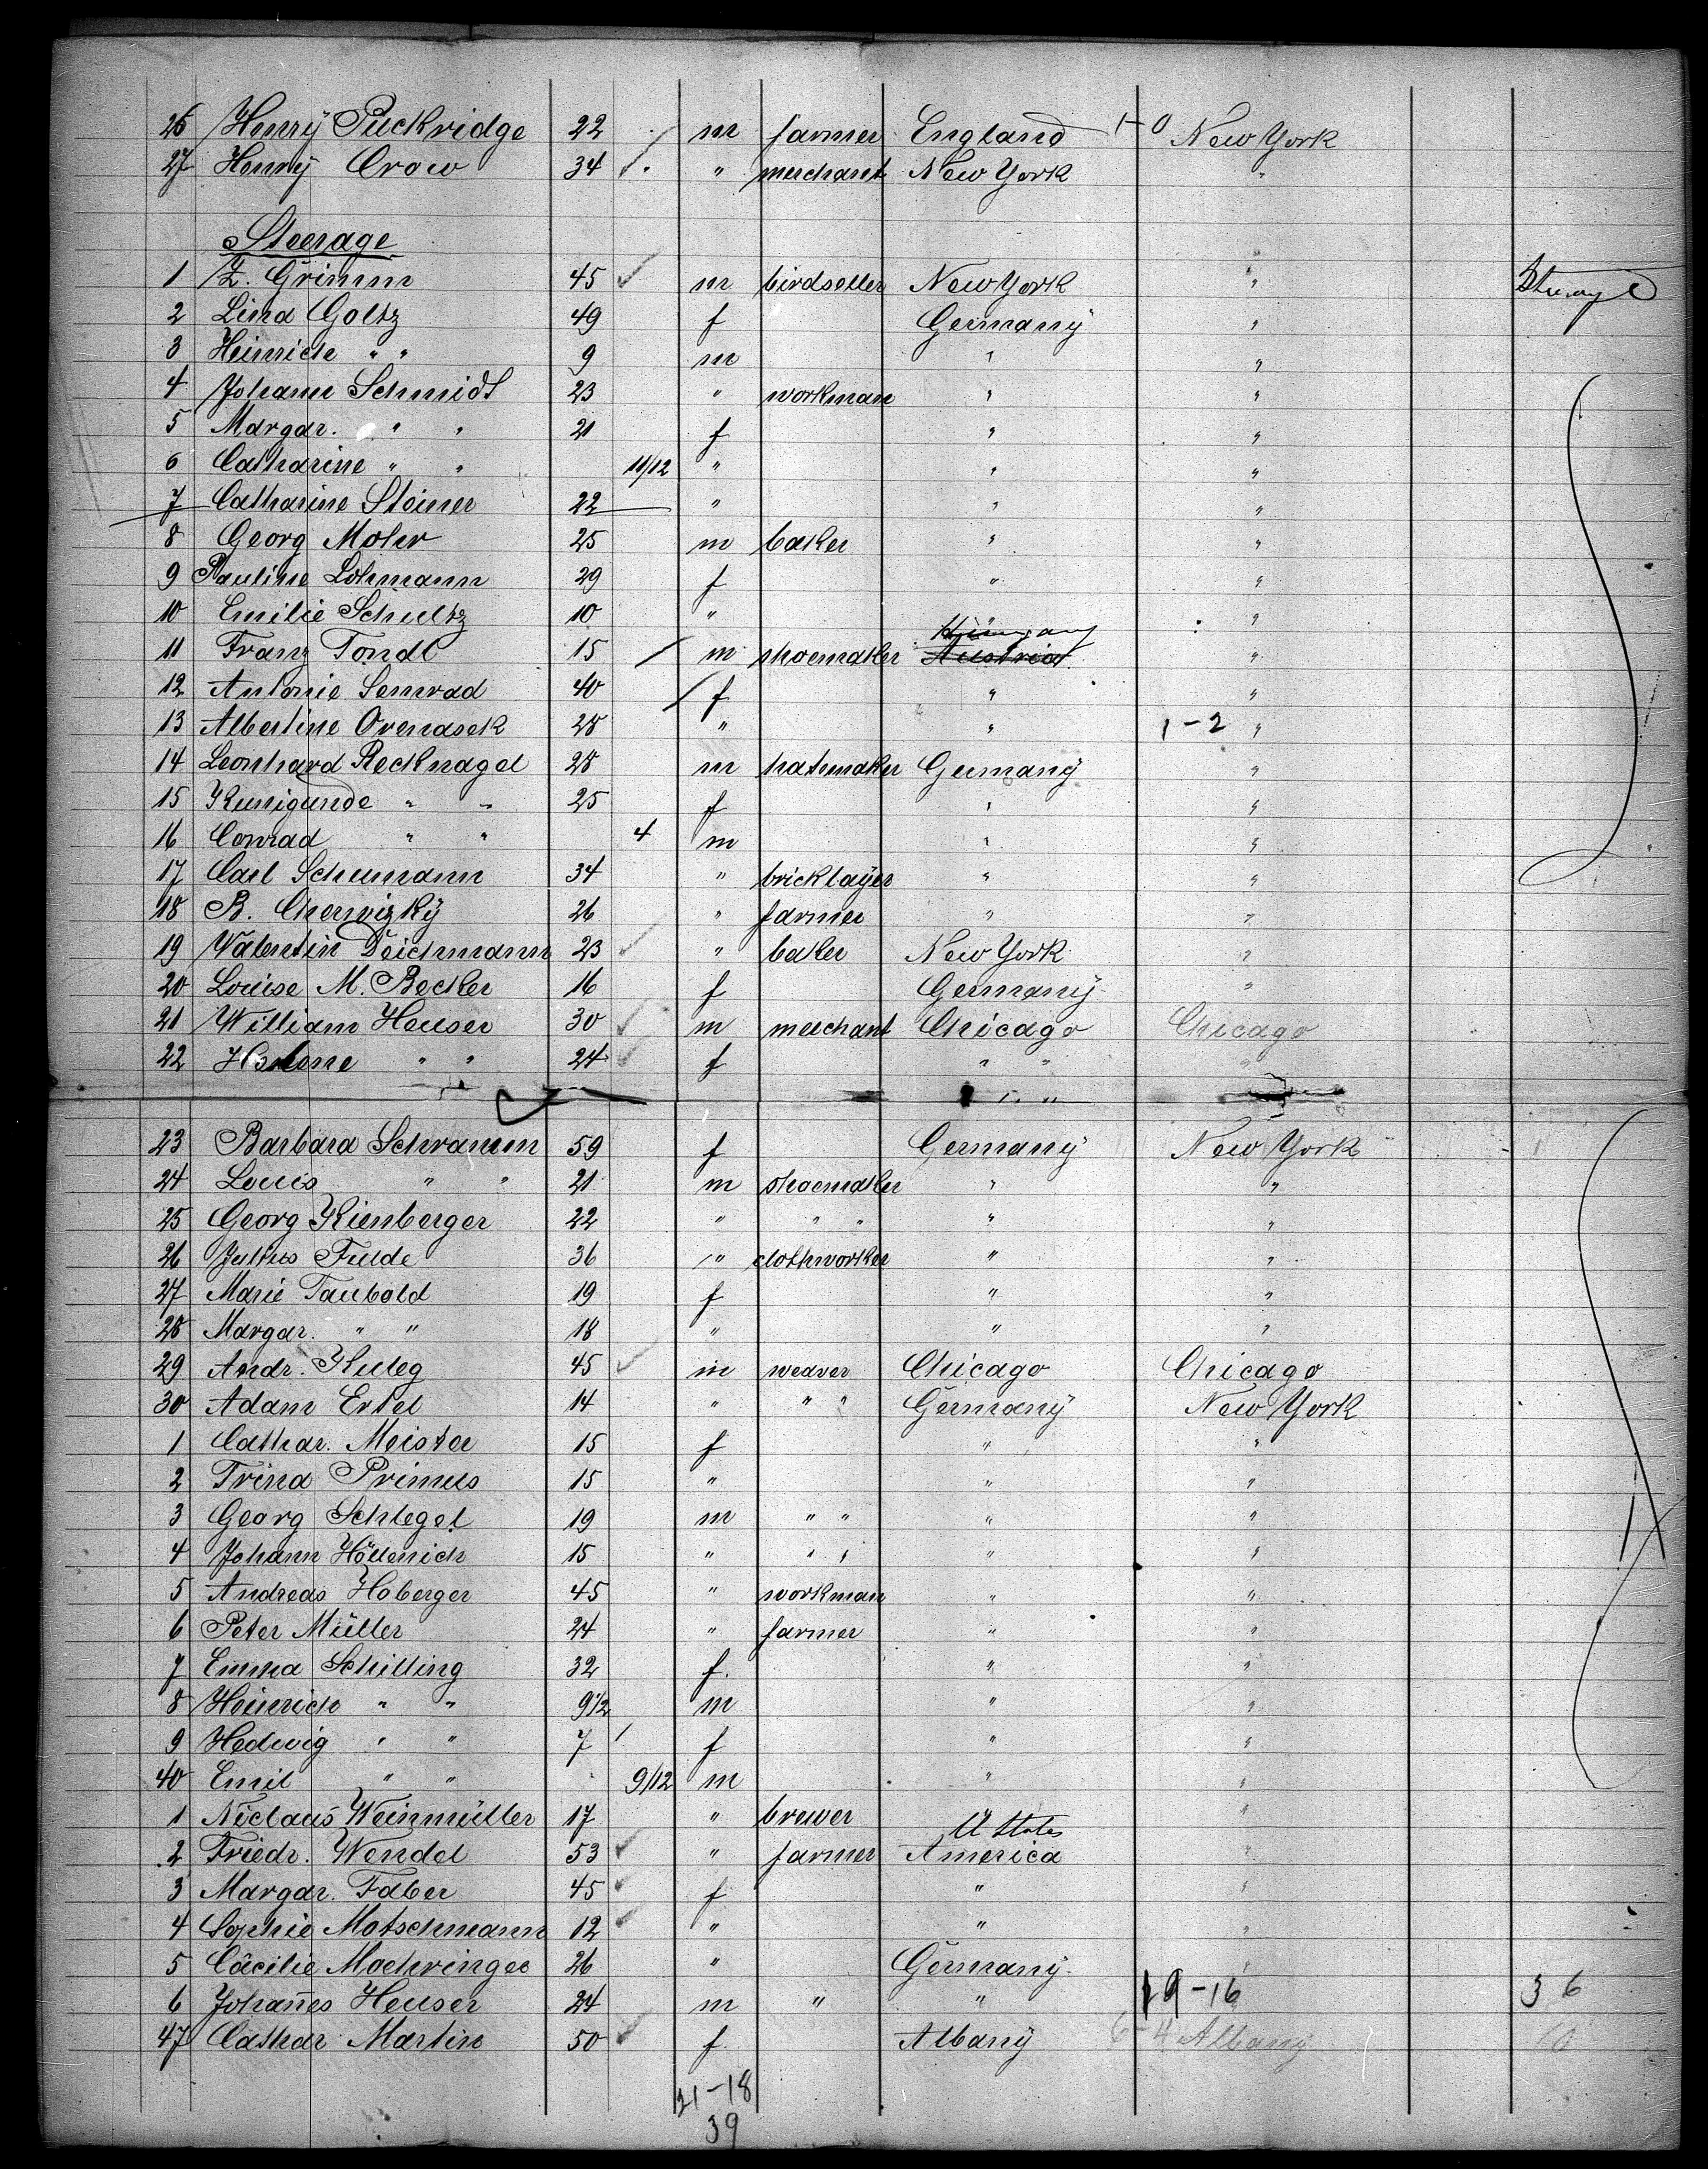 26 Henry Puckridge 22 m farmer England 1-0 New York
27 Henry Crow 34 " merchant New York "
Steerage
1 Z. Grimm 45 m birdseller New York " Steerage
2 Lina Goltz 49 f Germany "
3 Heinrich " " 9 m " "
4 Johann Schmidt 23 " workman " "
5 Margar. " " 21 f " "
6 Catharine " " 11/12 " " "
7 Catharine Steiner 22 " " "
8 Georg Mohr 25 m baker " "
9 Pauline Lohmann 29 f " "
10 Emilie Schultz 10 " "
11 Franz Tondl 15 m shoemaker Austria "
12 Antonie Semrad 40 f " "
13 Albertine 28 " " 1-2 "
14 Leonhard Recknagel 28 m hatemaker Germany "
15 Kunigunde " " 25 f " "
16 Conrad " " 4 m " "
17 Carl Schumann 34 " bricklayer " "
18 B. Cherwizky 26 " farmer " "
19 Valentin Deichmann 23 " baker New York "
20 Louise M. Becker 16 f Germany "
21 William Heuser 30 m merchant Chicago Chicago
22 Helene " " 24 f " " "
23 Barbara Schramm 59 f Germany New York
24 Louis " " 21 m shoemaker " "
25 Georg Kienberger 22 " " " " "
26 Julius Fulde 36 " clothworker " "
27 Marie Taubold 19 f " "
28 Margar. " " 18 " " "
29 Andr. 45 m weaver Chicago Chicago
30 Adam Ertel 14 " " " Germany New York
1 Cathar. Meister 15 f " "
2 Trina Primus 15 " " "
3 Georg Schlegel 19 m " " " "
4 Johann Höllerich 15 " " " " "
5 Andreas Hoberger 45 " workman " "
6 Peter Müller 24 " farmer " "
7 Emma Schilling 32 f. " "
8 Heinrich " " 9 1/2 m " "
9 Hedwig " " 7 f " "
40 Emil " " 9/12 m " "
1 Niclaus Weinmüller 17 " brewer "
U States
2 Friedr. Wendel 53 " farmer America "
3 Margar. Faber 45 f " "
4 Sophie Motschmann 12 " " "
5 Cäcilie Moehringer 26 " Germany "
6 Johañes Heuser 24 m " " 19-16 36
47 Cathar. Martin 50 f. Albany 6-4 Albany 10
21-18
39